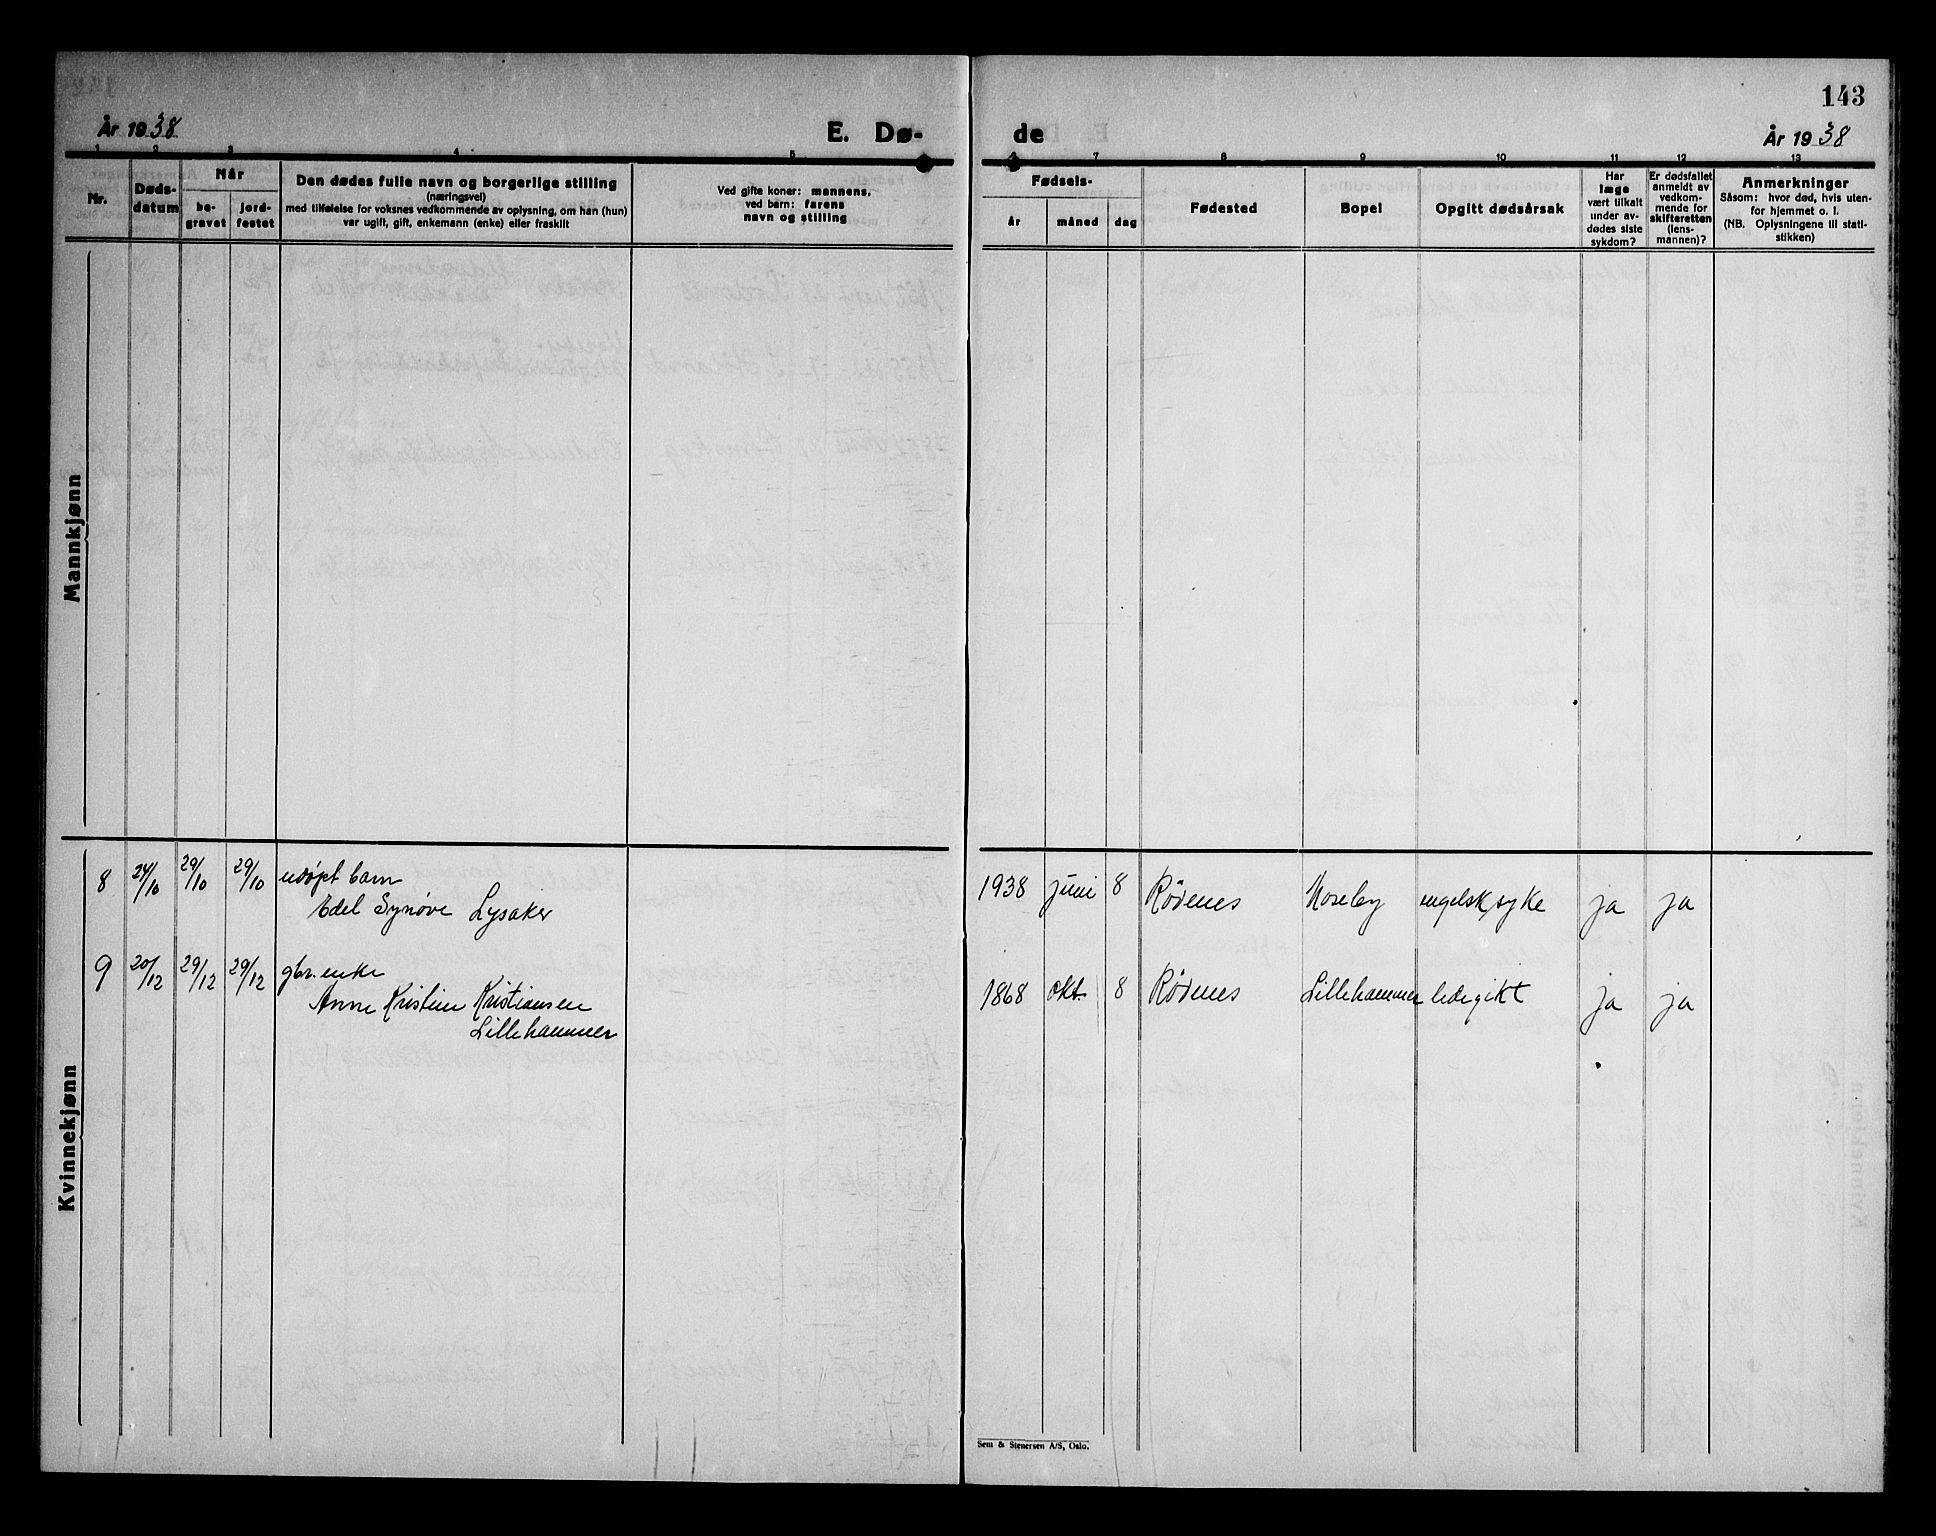 143
År 1938
E. Dø-
de
År 1938
1 2 3 4 5 6 7 8 9 10 11 12 13
Nr.
Døds-
datum
Når
be-
gravet
jord-
festet
Den dødes fulle navn og borgerlige stilling
(næringsvei)
med tilføielse for voksnes vedkommende av oplysning, om han (hun)
var ugift, gift, enkemann (enke) eller fraskilt
Ved gifte koner: mannens,
ved barn: farens
navn og stilling
Fødsels-
år
måned
dag
Fødested
Bopel
Opgitt dødsårsak
Har
læge
vært tilkalt
under av-
dødes siste
sykdom?
Er dødsfallet
anmeldt av
vedkom-
mende for
skifteretten
(lens-
mannen)?
Anmerkninger
Såsom: hvor død, hvis uten-
for hjemmet o. l.
(NB. Oplysningene til stati-
stikken)
Mannkjønn
Kvinnekjønn
8 24/10 29/10 29/10 udøpt barn
Edel Synøve Lysaker
1938 juni 8 Rødenes Moseby engelsk syke ja ja
9 20/12 29/12 29/12 gbr. enke
Anne Kristine Kristiansen
Lillehammer
1868 okt. 8 Rødenes Lillehammer ledegikt ja ja
Sem & Stenersen A/S, Oslo.